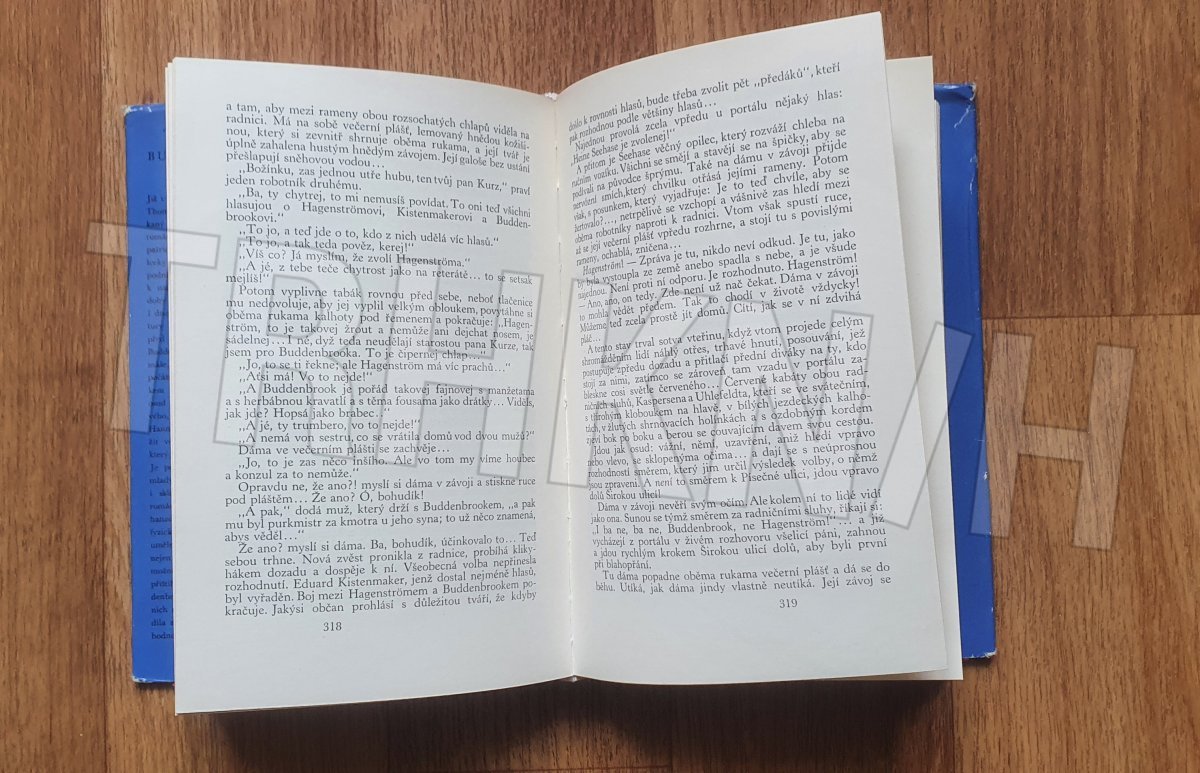 a tam, aby mezi rameny obou rozsochatých chlapů viděla na
radnici. Má na sobě večerní plášť, lemovaný hnědou kožiši-
nou, který si zevnitř shrnuje oběma rukama, a její tvář je
úplně zahalena hustým hnědým závojem. Její galoše bez ustání
přešlapují sněhovou vodou…
„Božínku, zas jednou utře hubu, ten tvůj pan Kurz,“ praví
jeden robotník druhému.
„Ba, ty chytrej, to mi nemusíš povídat. To oni teď všichni
hlasujou o Hagenströmovi, Kistenmakerovi a Budden-
brookovi.“
„To jo, a teď jde o to, kdo z nich udělá víc hlasů.“
„To jo, a tak teda pověz, kerej!“
„Víš co? Já myslím, že zvolí Hagenströma.“
„A jé, z tebe teče chytrost jako na reterátě… to se setsak
mejlíš!“
Potom vyplivne tabák rovnou před sebe, neboť tlačenice
mu nedovoluje, aby jej vyplil velkým obloukem, povytáhne si
oběma rukama kalhoty pod řemenem a pokračuje: „Hagen-
ström, to je takovej žrout a nemůže ani dejchat nosem, je
sádelnej… I né, dyž teda neudělají starostou pana Kurze, tak
jsem pro Buddenbrooka. To je čipernej chlap…“
„Jo, to se ti řekne; ale Hagenström má víc prachů…“
„Atsi má! Vo to nejde!“
„A Buddenbrook je pořád takovej fajnovej s manžetama
a s hedbábnou kravatli a s těma fousama jako drátky… Viděls,
jak jde? Hopsá jako brabec…“
„A jé, ty trumbero, vo to nejde!“
„A nemá von sestru, co se vrátila domů vod dvou mužů?“
Dáma ve večerním plášti se zachvěje…
„Jo, to je zas něco inšího. Ale vo tom my víme houbec
a konzul za to nemůže.“
Opravdu ne, že ano?! myslí si dáma v závoji a stiskne ruce
pod pláštěm… Že ano? Ó, bohudík!
„A pak,“ dodá muž, který drží s Buddenbrookem, „a pak
mu byl purkmistr za kmotra u jeho syna; to už něco znamená,
abys věděl…“
Že ano? myslí si dáma. Ba, bohudík, účinkovalo to… Teď
sebou trhne. Nová zvěst pronikla z radnice, probíhá kliky-
hákem dozadu a dospěje k ní. Všeobecná volba nepřinesla
rozhodnutí. Eduard Kistenmaker, jenž dostal nejméně hlasů,
byl vyřaděn. Boj mezi Hagenströmem a Buddenbrookem po-
kračuje. Jakýsi občan prohlásí s důležitou tváří, že kdyby
318
došlo k rovnosti hlasů, bude třeba zvolit pět „předáků“, kteří
pak rozhodnou podle většiny hlasů…
Najednou provolá zcela vpředu u portálu nějaký hlas:
„Heine Seehase je zvolenej!“
A přitom je Seehase věčný opilec, který rozváží chleba na
ručním vozíku. Všichni se smějí a stavějí se na špičky, aby se
podívali na původce šprýmu. Také na dámu v závoji přijde
nervózní smích, který chvilku otřásá jejími rameny. Potom
však, s posunkem, který vyjadřuje: Je to teď chvíle, aby se
žertovalo?…, netrpělivě se vzchopí a vášnivě zas hledí mezi
oběma robotníky naproti k radnici. Vtom však spustí ruce,
až se její večerní plášť vpředu rozhrne, a stojí tu s povislými
rameny, ochablá, zničena…
Hagenström! — Zpráva je tu, nikdo neví odkud. Je tu, jako
by byla vystoupla ze země anebo spadla s nebe, a je všude
najednou. Není proti ní odporu. Je rozhodnuto. Hagenström!
— Ano, ano, on tedy. Zde není už nač čekat. Dáma v závoji
to mohla vědět předem. Tak to chodí v životě vždycky!
Můžeme teď zcela prostě jít domů. Cítí, jak se v ní zdvihá
pláč…
A tento stav trval sotva vteřinu, když vtom projede celým
shromážděním lidí náhlý otřes, trhavé hnutí, posouvání, jež
postupuje zpředu dozadu a přitlačí přední diváky na ty, kdo
stojí za nimi, zatímco se zároveň tam vzadu v portálu za-
bleskne cosi světle červeného… Červené kabáty obou rad-
ničních sluhů, Kaspersena a Uhlefeldta, kteří se ve svátečním,
s třírohým kloboukem na hlavě, v bílých jezdeckých kalho-
tách, v žlutých shrnovacích holínkách a s ozdobným kordem
zjeví bok po boku a berou se couvajícím davem svou cestou.
Jdou jak osud: vážní, němí, uzavření, aniž hledí vpravo
nebo vlevo, se sklopenýma očima… a dají se s neúprosnou
rozhodností směrem, který jim určil výsledek volby, o němž
jsou zpraveni. A není to směrem k Písečné ulici, jdou vpravo
dolů Širokou ulicí!
Dáma v závoji nevěří svým očím. Ale kolem ní to lidé vidí
jako ona. Sunou se týmž směrem za radničními sluhy, říkají si:
„I ba ne, ba ne, Buddenbrook, ne Hagenström!“… a již
vycházejí z portálu v živém rozhovoru všelicí páni, zahnou
a jdou rychlým krokem Širokou ulicí dolů, aby byli první
při blahopřání.
Tu dáma popadne oběma rukama večerní plášť a dá se do
běhu. Utíká, jak dáma jindy vlastně neutíká. Její závoj se
319
TRHKNIH